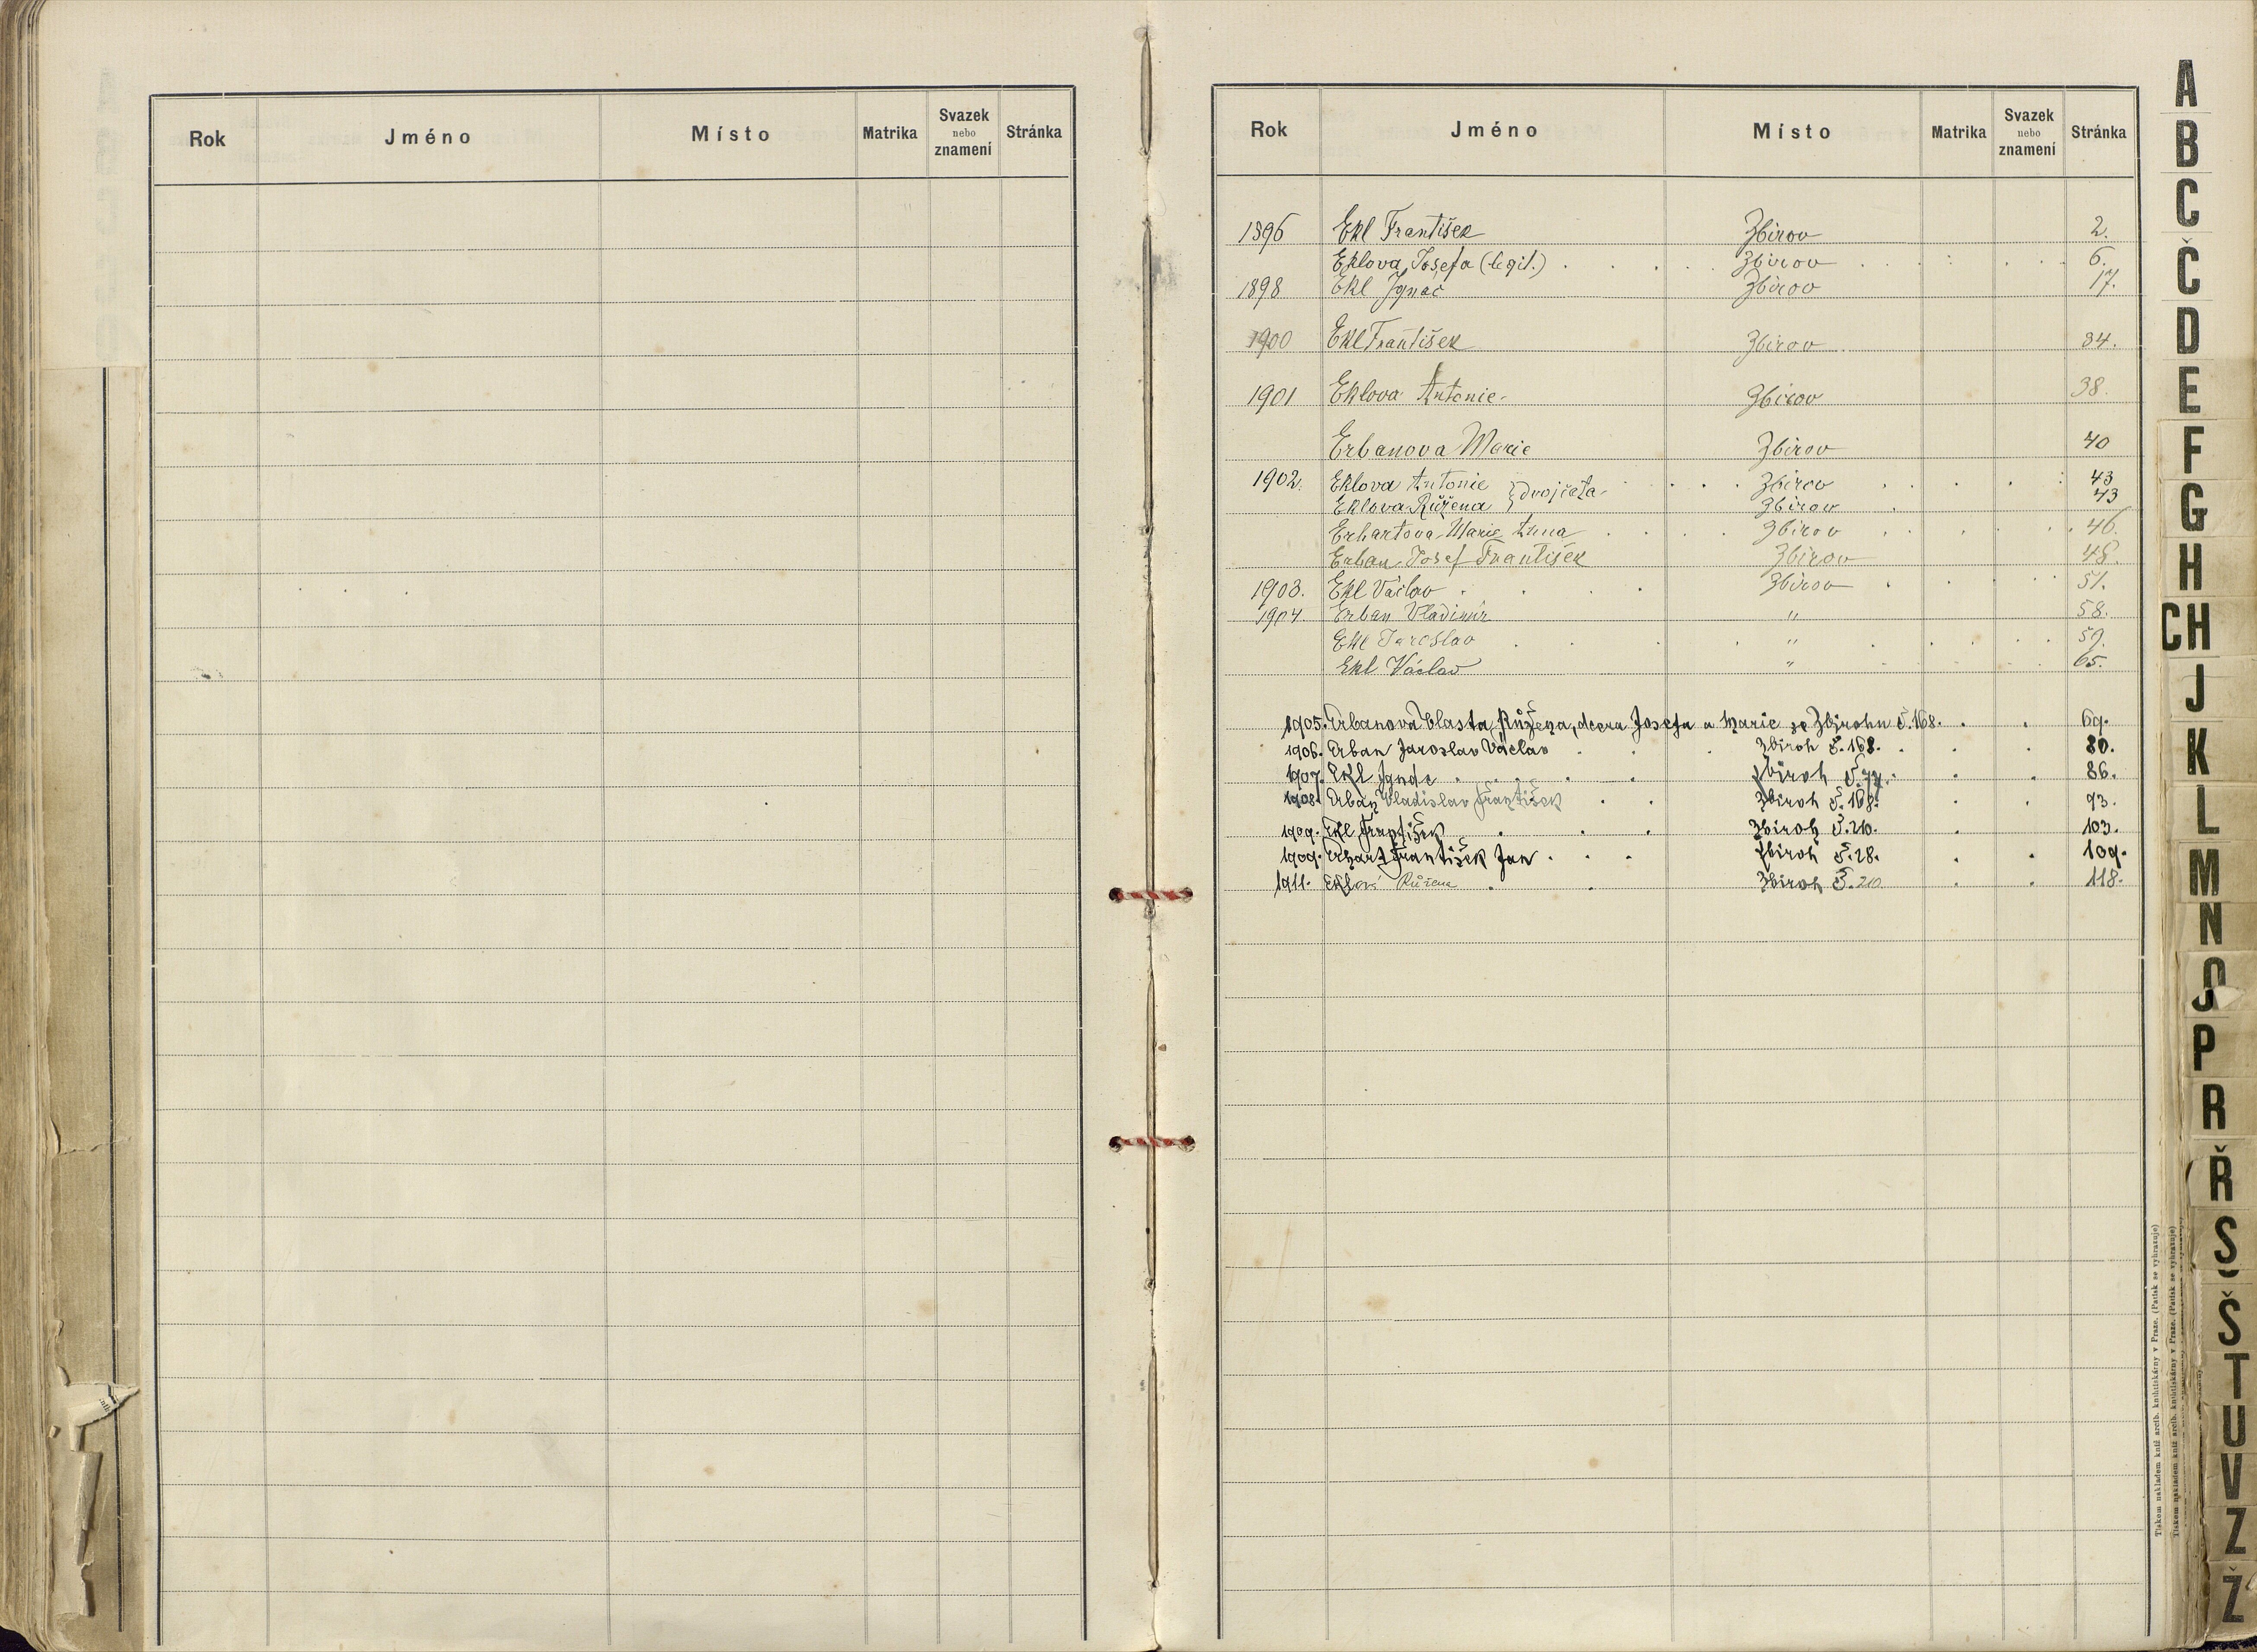 Rok Jméno Místo Matrika Svazek nebo znamení Stránka
Rok Jméno Místo Matrika Svazek nebo znamení Stránka
1896 Ekl František Zbirov 2.
Eklova Josefa (legit.) Zbirov 6.
1898 Ekl Ignac Zbirov 17.
1900 Ekl František Zbirov 34.
1901 Eklova Antonie Zbirov 38.
Erbanova Marie Zbirov 40
1902. Eklova Antonie } dvojčata Zbirov 43
Eklova Růžena Zbirov 43
Erhartova Marie Anna Zbirov 46.
Erban Josef František Zbirov 48.
1903. Ekl Václav Zbirov 51.
1904 Erban Vladimír " 58.
Ekl Jaroslav " 59.
Ekl Václav " 65.
1905. Erbanová Vlasta Růžena, dcera Josefa a Marie ze Zbirohu č. 168. 69.
1906. Erban Jaroslav Václav Zbiroh č. 168. 80.
1907. Ekl Ignác Zbiroh č. 77. 86.
1908. Erban Vladislav František Zbiroh č. 168. 93.
1909. Ekl František Zbiroh č. 210. 103.
1909. Erhart František Jan Zbiroh č. 28. 109.
1911. Eklová Růžena Zbiroh č. 210 118.
A
B
C
Č
D
E
F
G
H
CH
J
K
L
M
N
O
P
R
Ř
S
Š
T
U
V
Z
Ž
Tiskem nákladem kníž. arcib. knihtiskárny v Praze. (Patisk se vyhrazuje)
Tiskem nákladem kníž. arcib. knihtiskárny v Praze. (Patisk se vyhrazuje)